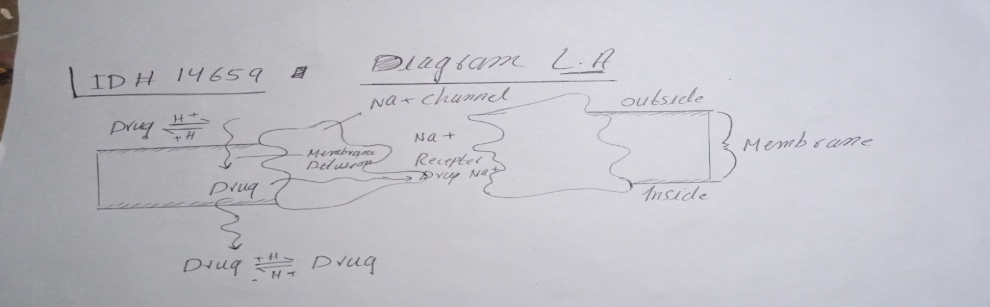 IDH 14659
Diagram L.A
Na+ channel
outside
Drug H+
+H
Na+
Membrane
Membrane
Recepter
Drug Na+
Drug
Inside
Drug +H Drug
H+